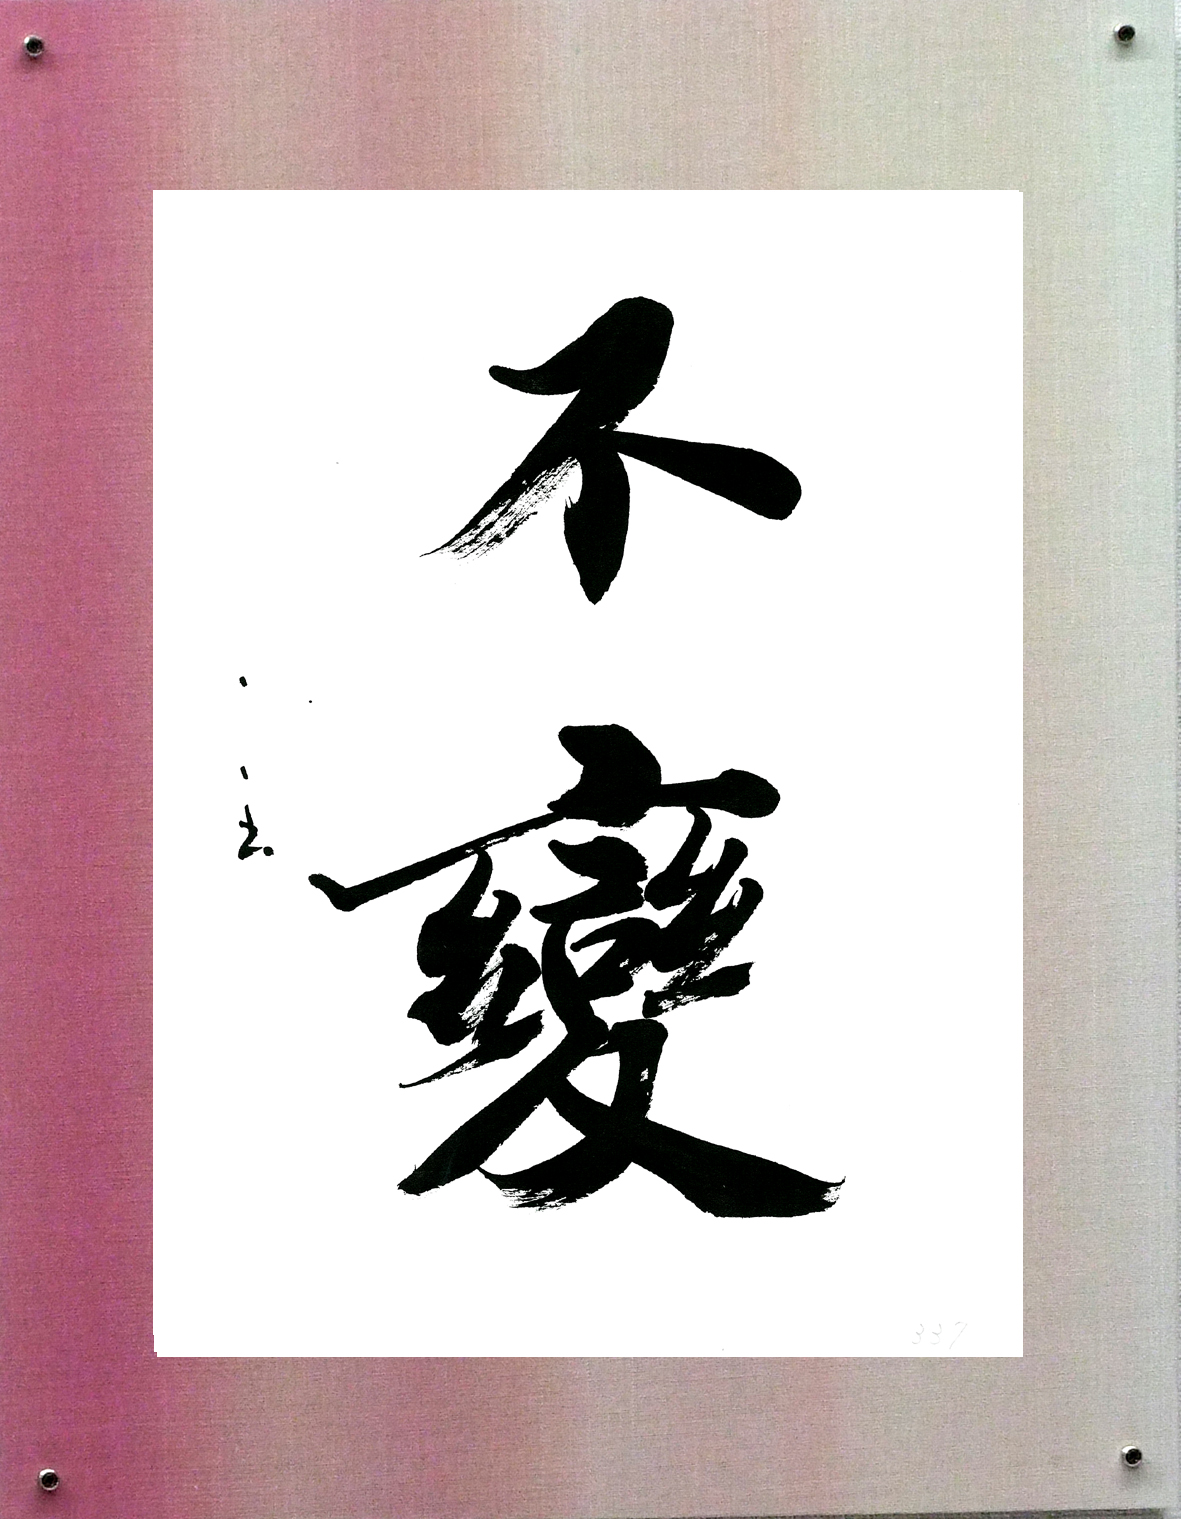 不
變
337